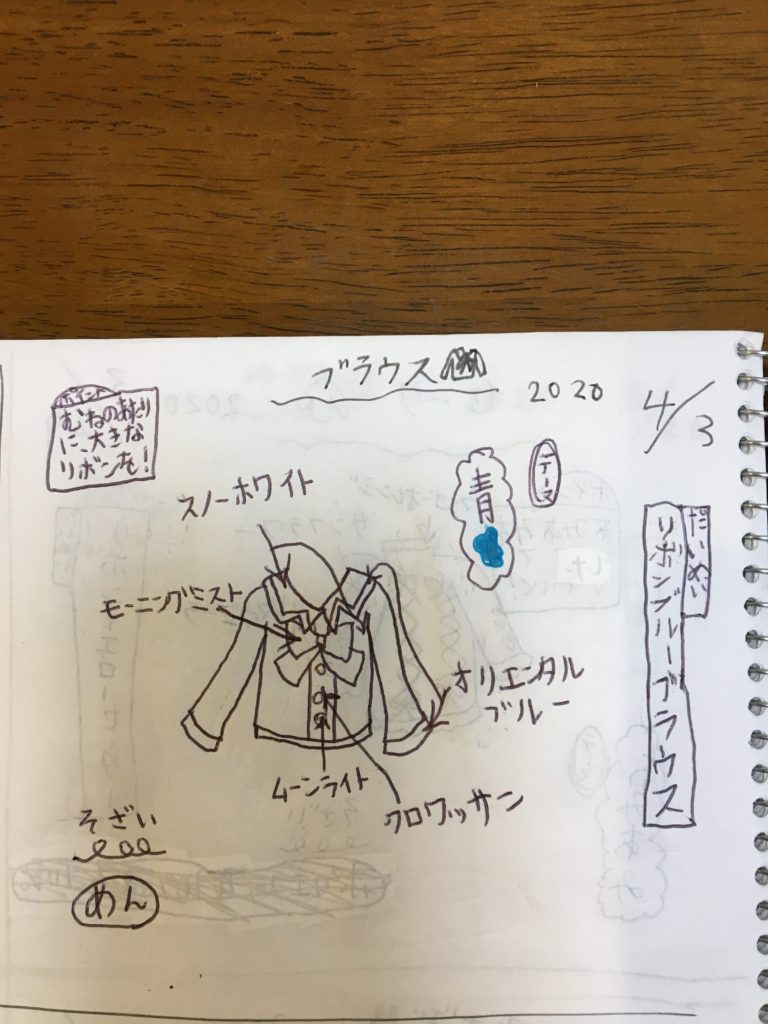 ブラウス
2020
4/3
ポイント
むねのあたり
に、大きな
リボンを!
テーマ
青
だいめい
リボンブルーブラウス
スノーホワイト
モーニングミスト
オリエンタル
ブルー
ムーンライト
クロワッサン
そざい
めん